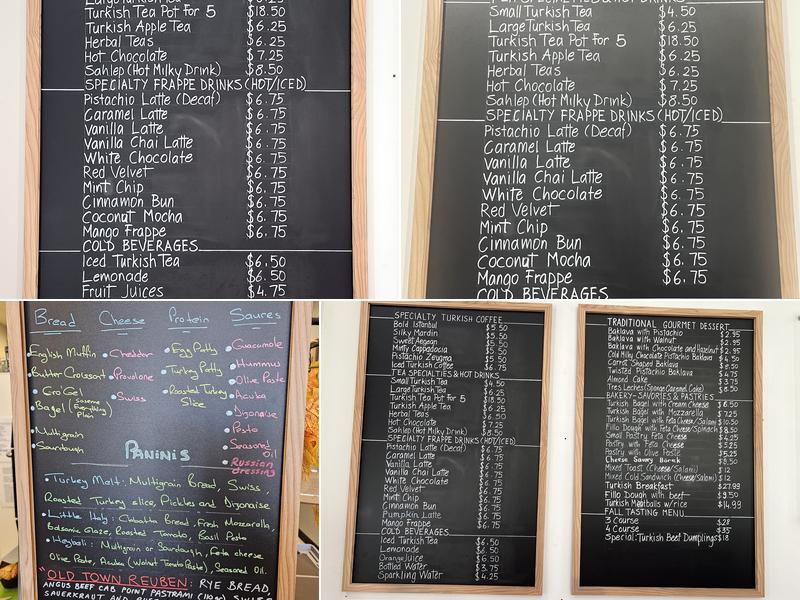 Large Turkish Tea
Turkish Tea Pot for 5 $18.50
Turkish Apple Tea $6.25
Herbal Teas $6.25
Hot Chocolate $7.25
Sahlep (Hot Milky Drink) $8.50
SPECIALTY FRAPPE DRINKS (HOT/ICED)
Pistachio Latte (Decaf) $6.75
Caramel Latte $6.75
Vanilla Latte $6.75
Vanilla Chai Latte $6.75
White Chocolate $6.75
Red Velvet $6.75
Mint Chip $6.75
Cinnamon Bun $6.75
Coconut Mocha $6.75
Mango Frappe $6.75
COLD BEVERAGES
Iced Turkish Tea $6.50
Lemonade $6.50
Fruit Juices $4.75
TEA SPECIALTIES & HOT DRINKS
Small Turkish Tea $4.50
Large Turkish Tea $6.25
Turkish Tea Pot for 5 $18.50
Turkish Apple Tea $6.25
Herbal Teas $6.25
Hot Chocolate $7.25
Sahlep (Hot Milky Drink) $8.50
SPECIALTY FRAPPE DRINKS (HOT/ICED)
Pistachio Latte (Decaf) $6.75
Caramel Latte $6.75
Vanilla Latte $6.75
Vanilla Chai Latte $6.75
White Chocolate $6.75
Red Velvet $6.75
Mint Chip $6.75
Cinnamon Bun $6.75
Coconut Mocha $6.75
Mango Frappe $6.75
COLD BEVERAGES
Bread Cheese Protein Saures
English Muffin Cheddar Egg Patty Guacamole
Butter Croissant Provalone Turkey Patty Hummus
Ciro Gel Swiss Roasted Turkey Slice Olive Paste
Bagel (Sesame Everything Plain) Acuka
Dijonaise
Multigrain Pesto
Sourdough Seasoned Oil
PANINIS Russian dressing
Turkey Melt: Multigrain Bread, Swiss
Roasted Turkey slice, Pickles and Dijonaise
Little Italy: Ciabatta Bread, Fresh Mozzarella,
Balsamic Glaze, Roasted Tomato, Basil Pesto
Heybeli: Multigrain or Sourdough, Feta cheese
Olive Paste, Acuka (Walnut Tomato Paste), Seasoned Oil.
"OLD TOWN REUBEN: RYE BREAD,
ANGUS BEEF CAB POINT PASTRAMI
SAUERKRAUT AND
SPECIALTY TURKISH COFFEE
Bold Istanbul $5.50
Silky Mardin $5.50
Sweet Aegean $5.50
Misty Cappadocia $5.50
Pistachio Zeugma $5.50
Iced Turkish Coffee $6.75
TEA SPECIALTIES & HOT DRINKS
Small Turkish Tea $4.50
Large Turkish Tea $6.25
Turkish Tea Pot for 5 $18.50
Turkish Apple Tea $6.25
Herbal Teas $6.50
Hot Chocolate $7.25
Sahlep (Hot Milky Drink) $8.50
SPECIALTY FRAPPE DRINKS (HOT/ICED)
Pistachio Latte (Decaf) $6.75
Caramel Latte $6.75
Vanilla Latte $6.75
Vanilla Chai Latte $6.75
White Chocolate $6.75
Red Velvet $6.75
Mint Chip $6.75
Cinnamon Bun $6.75
Pumpkin Latte $6.75
Mango Frappe $6.75
COLD BEVERAGES
Iced Turkish Tea $6.50
Lemonade $6.50
Orange Juice $6.50
Bottled Water $3.75
Sparkling Water $4.25
TRADITIONAL GOURMET DESSERT
Baklava with Pistachio $2.95
Baklava with Walnut $2.95
Baklava with Chocolate and Hazelnut $2.95
Cold Milky Chocolate Pistachio Baklava $4.50
Carrot Shaped Baklava
Twisted Pistachio Baklava $4.50
Almond Cake $3.75
Tres Leches (Sponge Caramel Cake) $8.50
BAKERY-SAVORIES & PASTRIES
Turkish Bagel with Cream Cheese $6.50
Turkish Bagel with Mozzarella $7.25
Turkish Bagel with Feta Cheese/Salami $10.50
Fillo Dough with Feta Cheese/Spinach $8.50
Small Pastry Feta Cheese $4.25
Pastry with Feta Cheese $5.25
Pastry with Olive $5.25
Cheese Savory Borek
Mixed Toast (Cheese/Salami) $12
Mixed Cold Sandwich (Cheese/Salami) $12
Turkish Breakfast $27.99
Fillo Dough with beef $9.50
Turkish Meatballs w/rice $14.99
FALL TASTING MENU
3 Course $28
4 Course $35
Special: Turkish Beef Dumplings $18